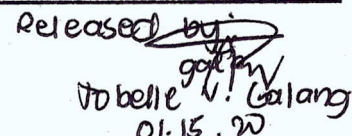 Released by:
Jobelle V. Galang
01.15.20